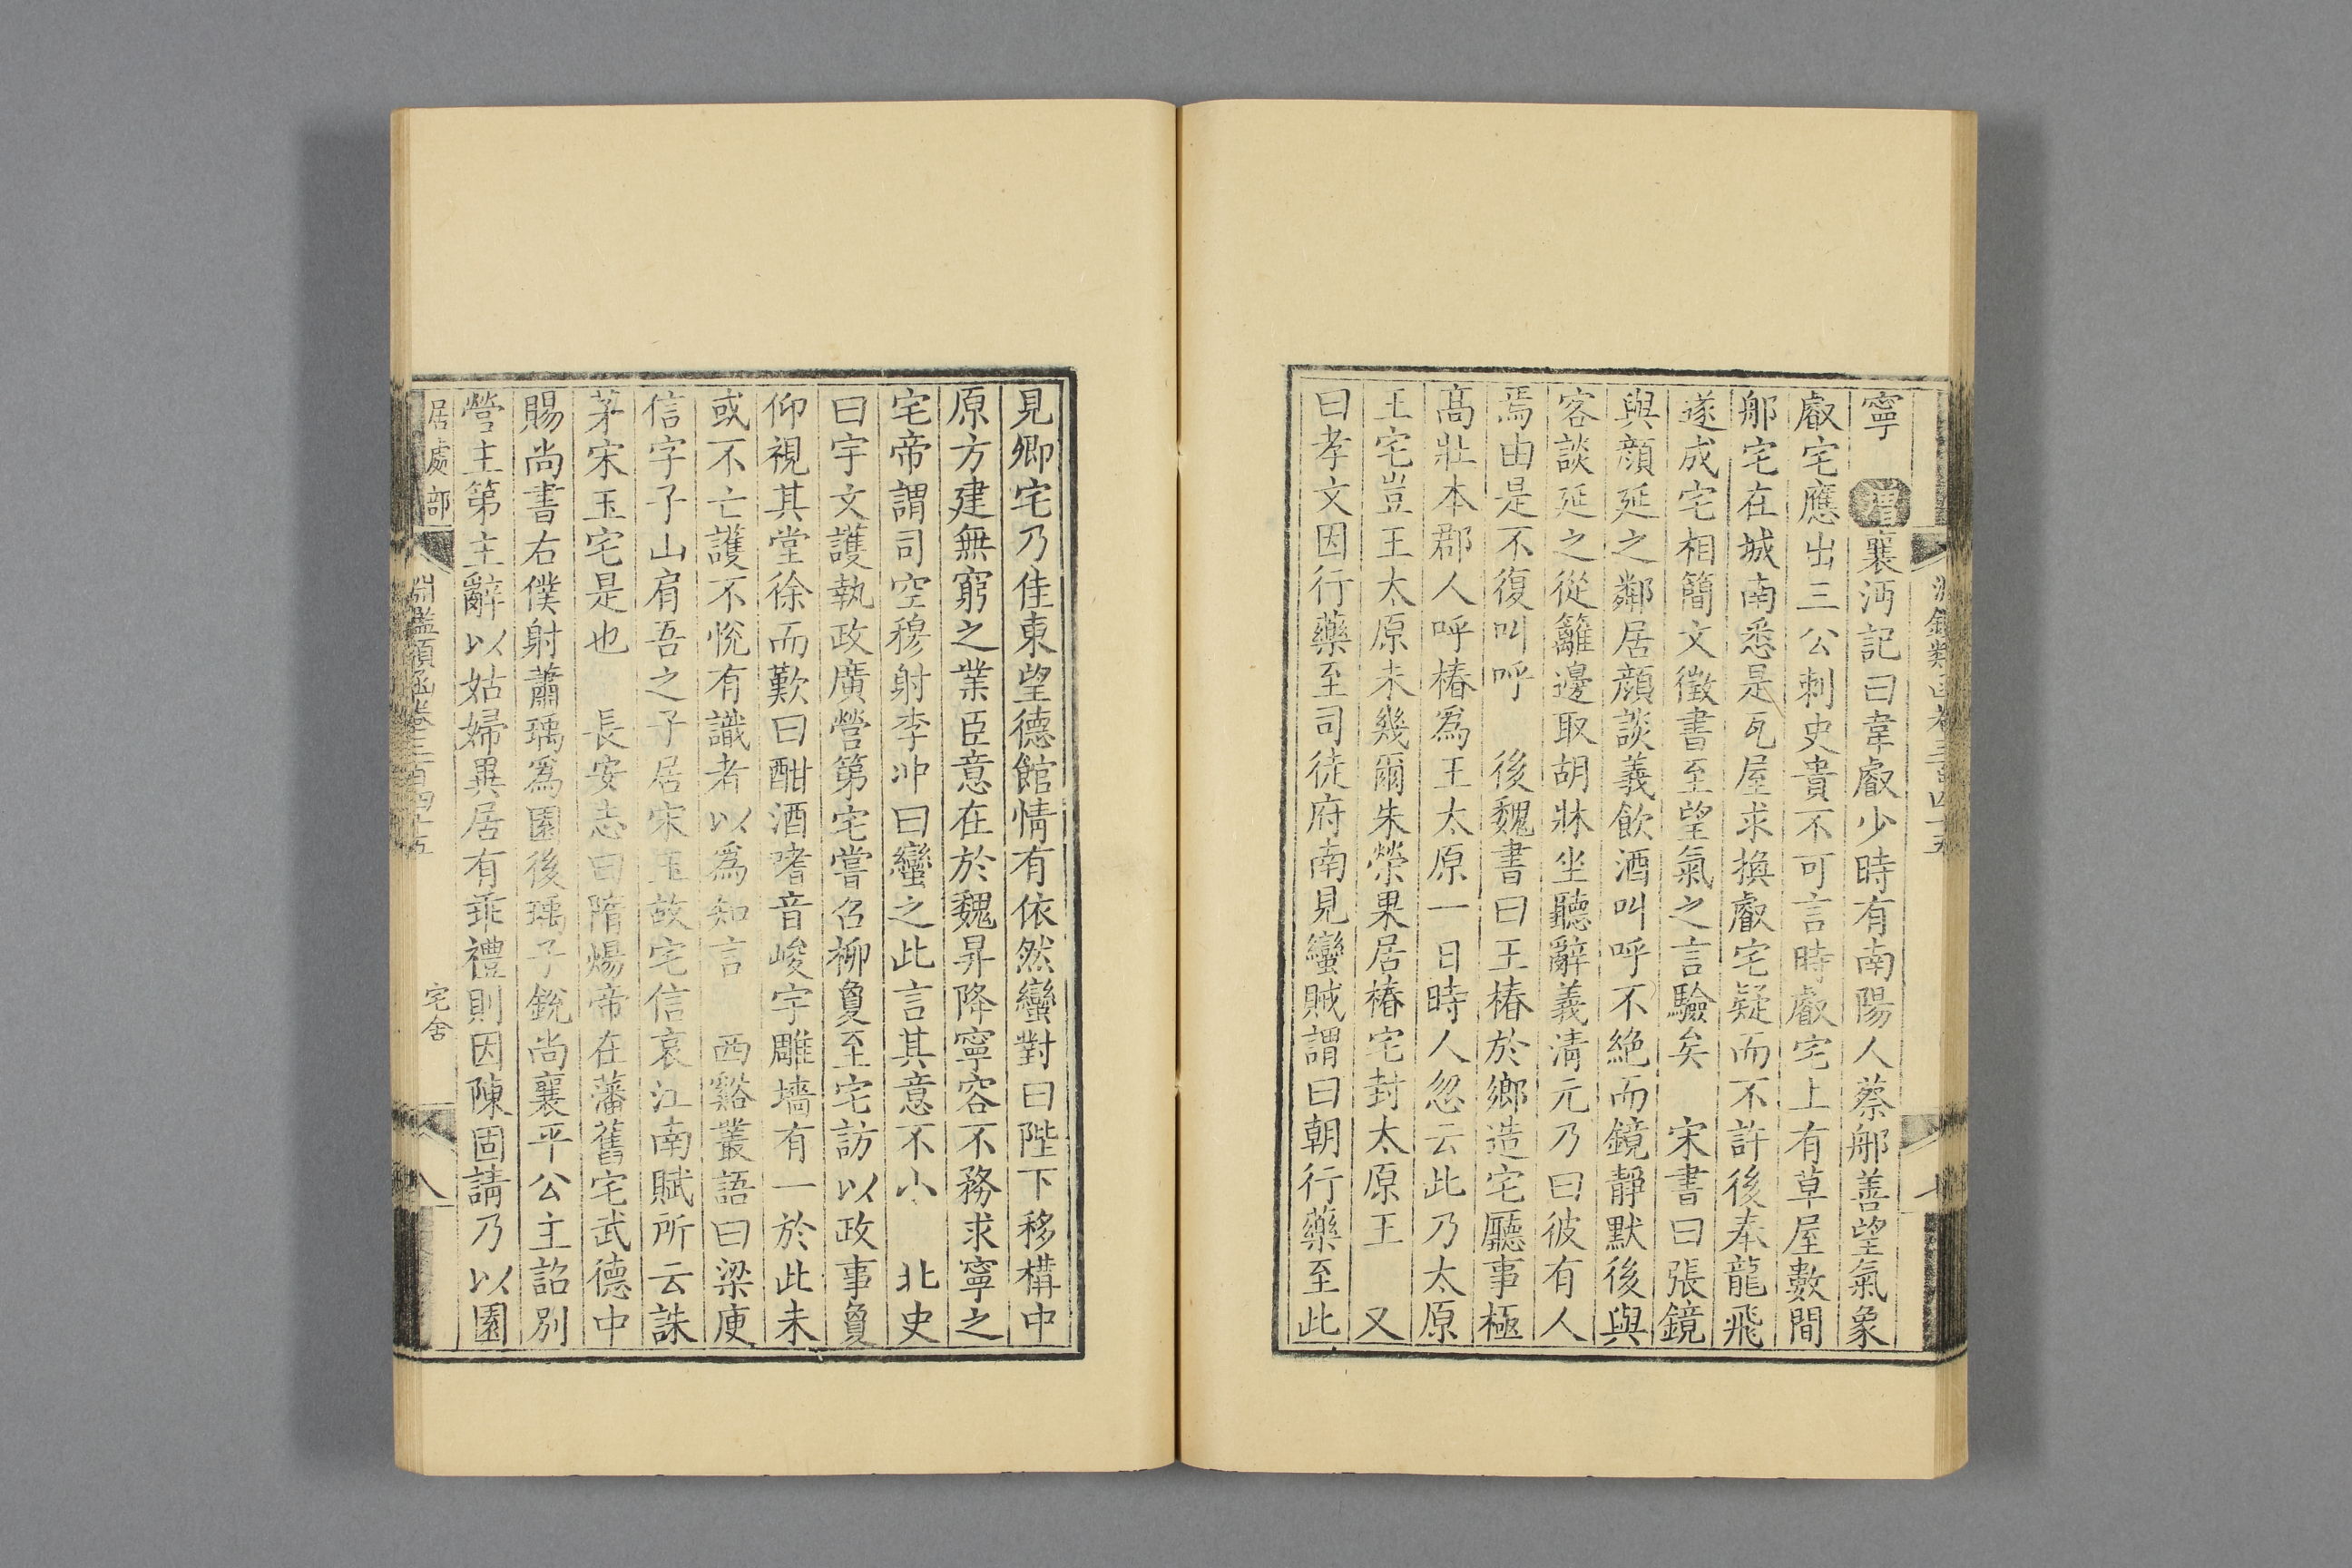 寧 增襄沔記曰韋叡少時有南陽人蔡郍善望氣象
叡宅應出三公刺史貴不可言時叡宅上有草屋數間
郍宅在城南悉是瓦屋求換叡宅疑而不許後奉龍飛
遂成宅相簡文徵書至望氣之言驗矣 宋書曰張鏡
與顔延之鄰居顔談義飲酒叫呼不絶而鏡靜默後與
客談延之從籬邊取胡牀坐聽辭義清元乃曰彼有人
焉由是不復叫呼 後魏書曰王椿於鄉造宅廳事極
髙壯本郡人呼椿爲王太原一日時人忽云此乃太原
王宅豈王太原未幾爾朱榮果居椿宅封太原王 又
曰孝文因行藥至司徒府南見蠻賊謂曰朝行藥至此
見卿宅乃住東望德館情有依然蠻對曰陛下移構中
原方建無窮之業臣意在於魏昇降寧容不務求寧之
宅帝謂司空穆射李冲曰蠻之此言其意不小 北史
曰宇文護執政廣營第宅嘗召柳敻至宅訪以政事敻
仰視其堂徐而歎曰酣酒嗜音峻宇雕墻有一於此未
或不亡護不悅有識者以爲知言 西谿叢語曰梁庾
信字子山肩吾之子居宋玉故宅信哀江南賦所云誅
茅宋玉宅是也 長安志曰隋煬帝在藩舊宅武德中
賜尚書右僕射蕭瑀爲園後瑀子銳尚襄平公主詔别
營主第主辭以姑婦異居有乖禮則因陳固請乃以園
居處部
淵鑑類函卷三百四十五
宅舍
八